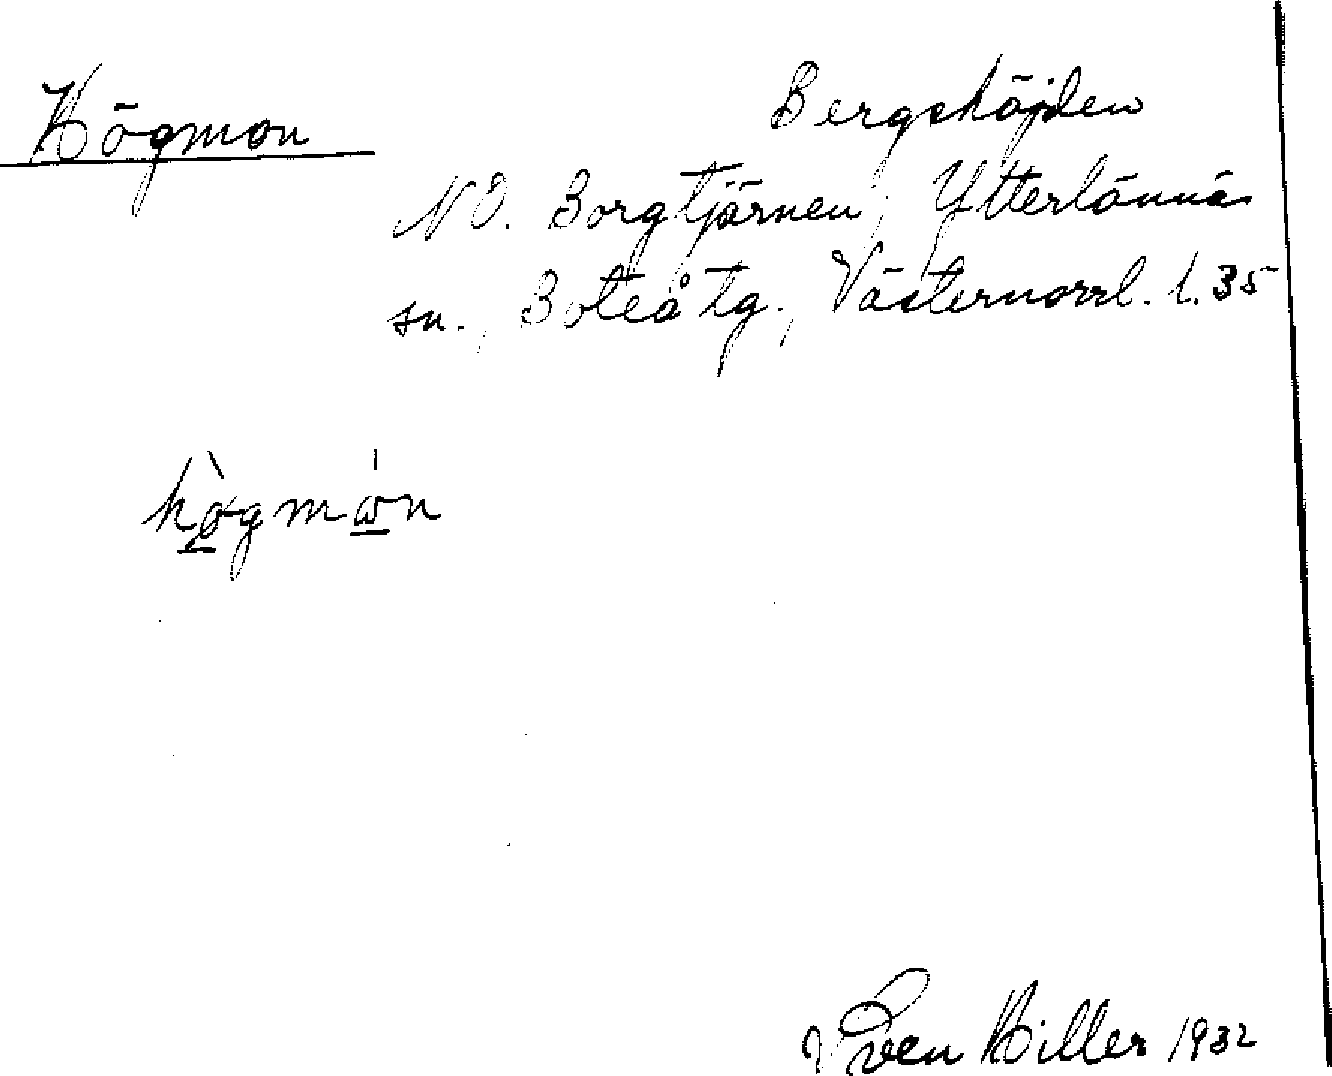 Högmon
Bergshöjden
NO. Borgtjärnen, Ytterlännäs
sn., Boteå tg., Västernorrl. l. 35
hø̀gmωn
Sven Hiller 1932